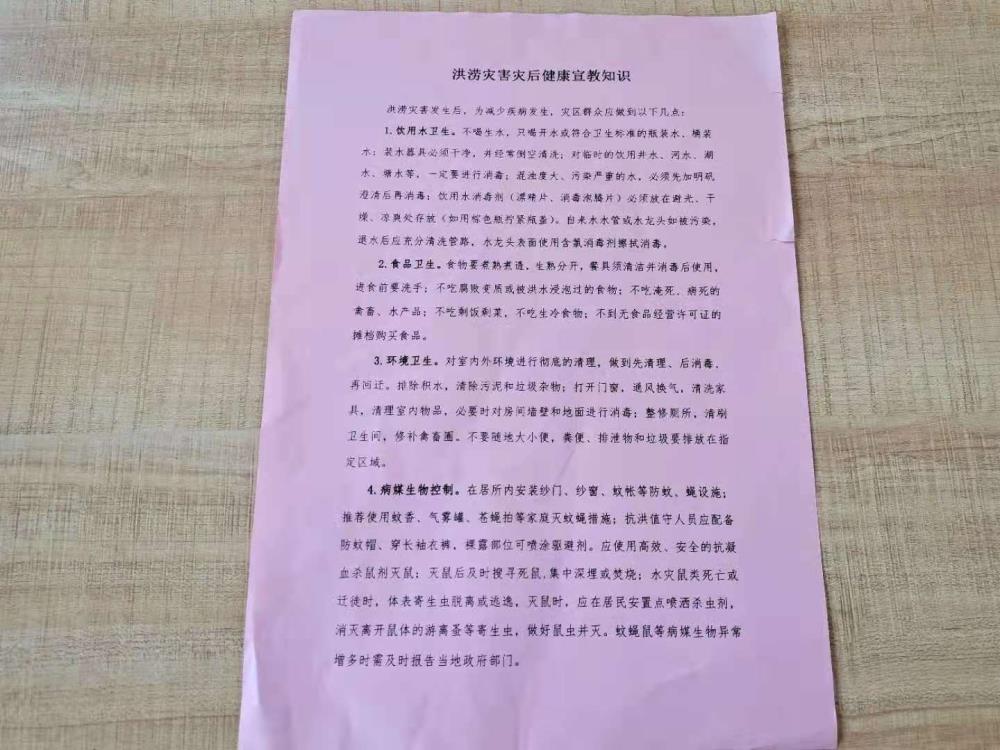 洪涝灾害灾后健康宣教知识
洪涝灾害发生后，为减少疾病发生，灾区群众应做到以下几点：
1.饮用水卫生。不喝生水，只喝开水或符合卫生标准的瓶装水、桶装
水；装水器具必须干净，并经常倒空清洗；对临时的饮用井水、河水、湖
水、塘水等，一定要进行消毒；混浊度大、污染严重的水，必须先加明矾
澄清后再消毒；饮用水消毒剂（漂精片、消毒泡腾片）必须放在避光、干
燥、凉爽处存放（如用棕色瓶拧紧瓶盖）。自来水水管或水龙头如被污染，
退水后应充分清洗管路，水龙头表面使用含氯消毒剂擦拭消毒。
2.食品卫生。食物要煮熟煮透，生熟分开，餐具须清洁并消毒后使用，
进食前要洗手；不吃腐败变质或被洪水浸泡过的食物；不吃淹死、病死的
禽畜、水产品；不吃剩饭剩菜，不吃生冷食物；不到无食品经营许可证的
摊档购买食品。
3.环境卫生。对室内外环境进行彻底的清理，做到先清理、后消毒、
再回迁。排除积水，清除污泥和垃圾杂物；打开门窗，通风换气，清洗家
具，清理室内物品，必要时对房间墙壁和地面进行消毒；整修厕所，清刷
卫生间，修补禽畜圈。不要随地大小便，粪便、排泄物和垃圾要排放在指
定区域。
4.病媒生物控制。在居所内安装纱门、纱窗、蚊帐等防蚊、蝇设施；
推荐使用蚊香、气雾罐、苍蝇拍等家庭灭蚊蝇措施；抗洪值守人员应配备
防蚊帽、穿长袖衣裤，裸露部位可喷涂驱避剂。应使用高效、安全的抗凝
血杀鼠剂灭鼠；灭鼠后及时搜寻死鼠,集中深埋或焚烧；水灾鼠类死亡或
迁徙时，体表寄生虫脱离或逃逸，灭鼠时，应在居民安置点喷洒杀虫剂，
消灭离开鼠体的游离蚤等寄生虫，做好鼠虫并灭。蚊蝇鼠等病媒生物异常
增多时需及时报告当地政府部门。